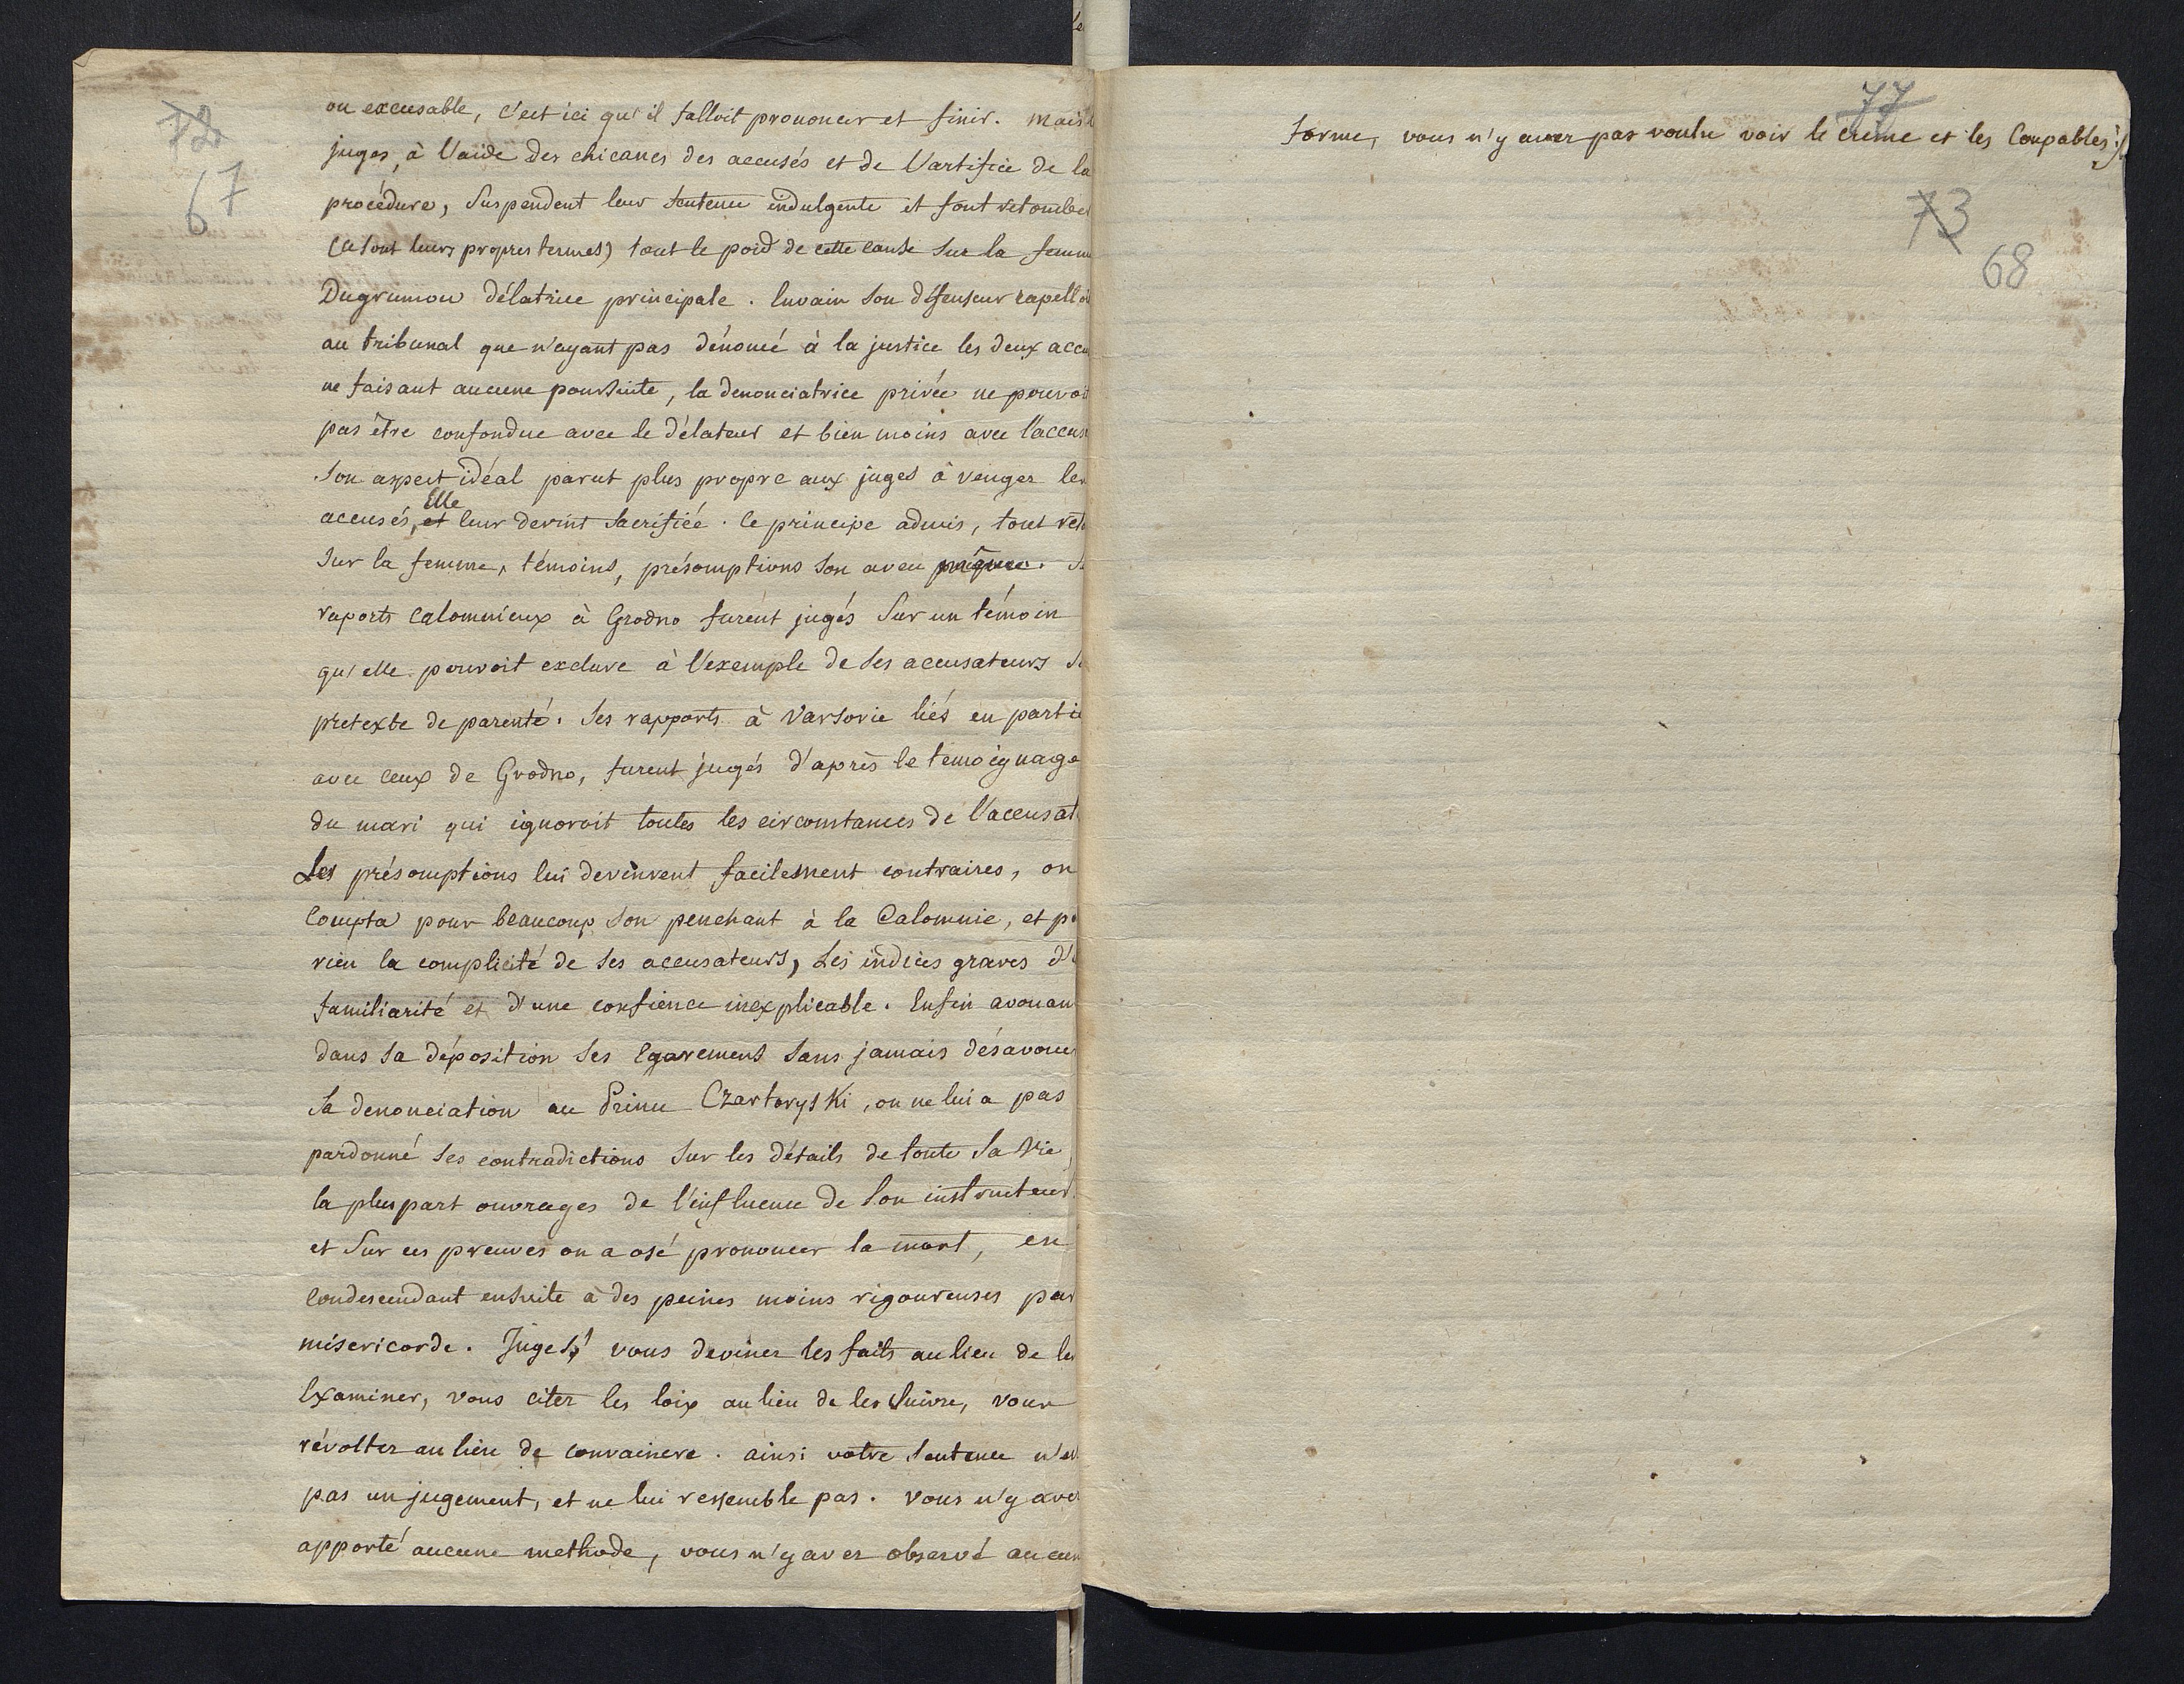 72
67
ou excusable, c'est ici qu'il falloit prononcer et finir. mais
juges, à l'aide des chicanes des accusés et de l'artifice de la
procédure, suspendent leur sentence indulgente et font retomber
(ce sont leurs propres termes) tout le poid de cette cause sur la femm
Dugrumow délatrice principale. Envain son défenseur rapell
au tribunal que n'ayant pas dénoncé à la justice les deux accu
ne faisant aucune poursuite, la denonciatrice privée ne pouvoit
pas être confondue avec le délateur et bien moins avec l'accus
Son aspect idéal parut plus propre aux juges à venger les
Elle
accusés, et leur devint sacrifiée. Ce principe admis, tout ret
sur la femme, témoins, présomptions son aveu
raports calomnieux à Grodno furent jugés sur un témoin
qu'elle pouvoit exclure à l'exemple de ses accusateurs
pretexte de parenté. Ses rapports à Varsovie liés en partie
avec ceux de Grodno, furent jugés d'après le temoignage
du mari qui ignoroit toutes les circonstances de l'accusat
Les présomptions lui devinrent facilement contraires, on
compta pour beaucoup son penchant à la Calomnie, et p
rien la complicité de ses accusateurs, Les indices graves d'
familiarité et d'une confience inexplicable. Enfin avouan
dans sa déposition ses egaremens sans jamais désavouer
Sa denonciation au Prince Czartoryski, on ne lui a pas
pardonné ses contradictions sur les détails de toute sa vie,
la pluspart ouvrages de l'influence de son instructeur
et sur ces preuves on a osé prononcer la mort, en
condescendant ensuite à des peines moins rigoureuses par
miséricorde. Juges! vous devinez les faits au lieu de les
Examiner, vous citez les loix au lieu de les suivre, vous
révoltez au lieu de convaincre. ainsi votre sentence n'est
pas un jugement, et ne lui ressemble pas. Vous n'y avez
apporté aucune methode, vous n'y avez observé aucun
77
forme, vous n'y avez pas voulu voir le crime et les Coupables
73
68